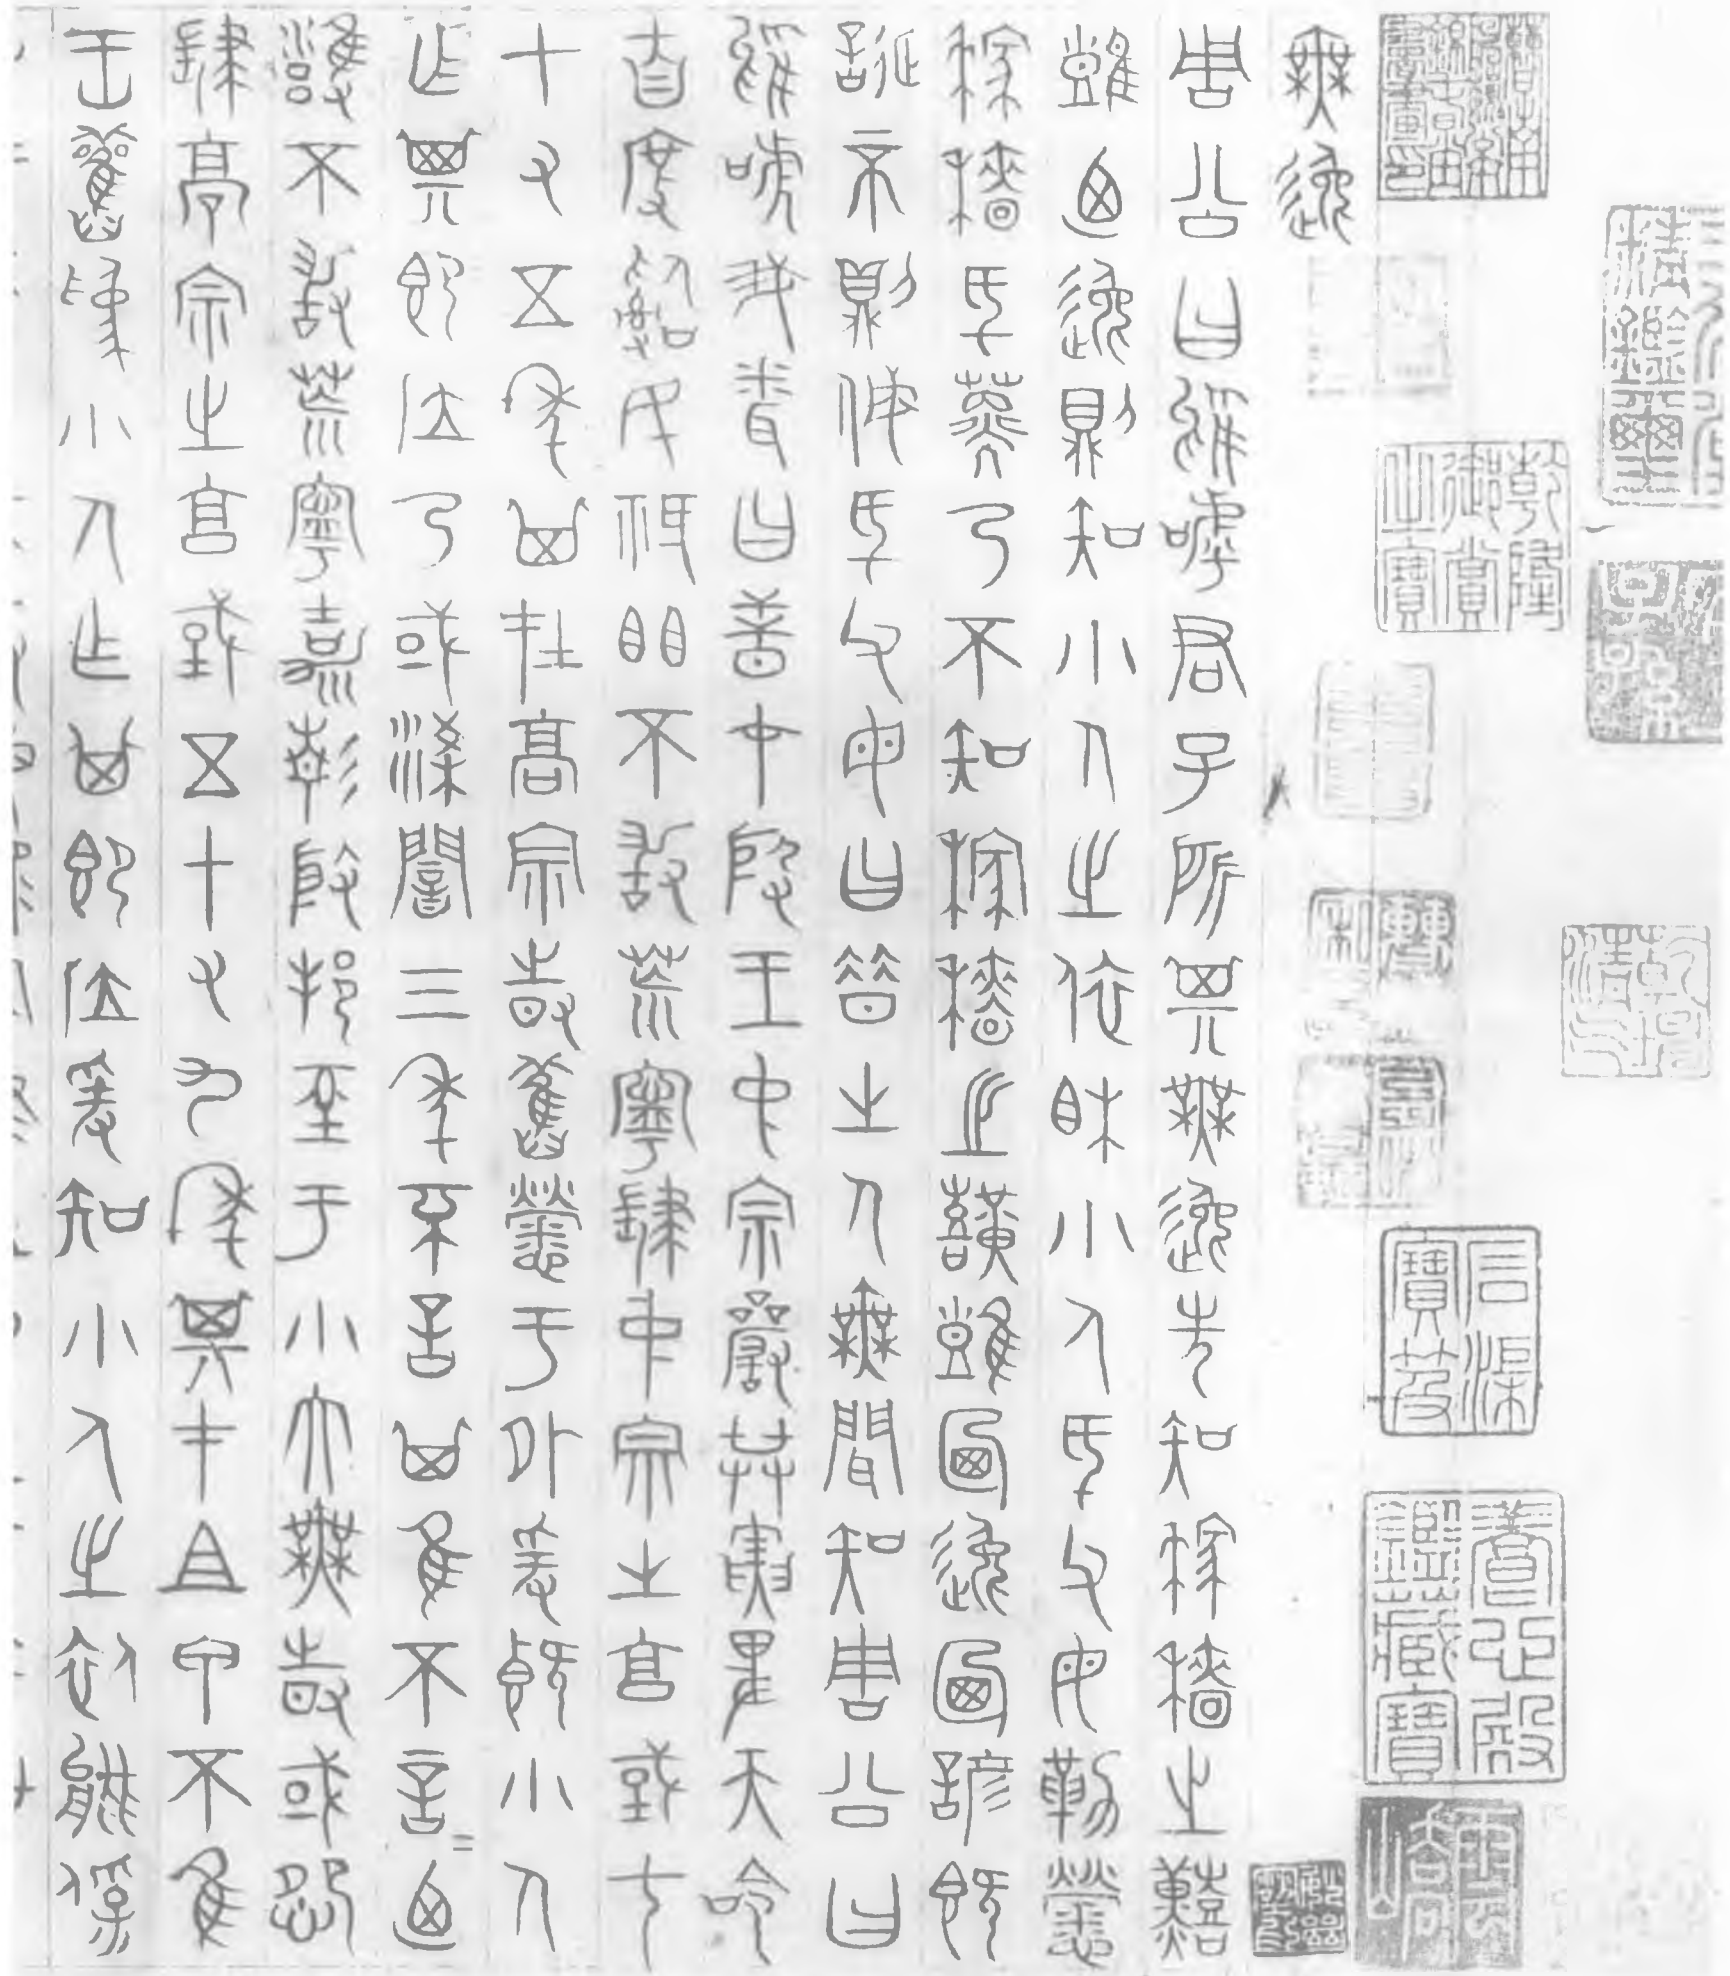 無逸
周公曰嗚呼君子所其無逸先知稼穡之艱
難乃逸則知小人之依相小人厥父母勤勞
稼穡厥子乃不知稼穡之艱難乃逸乃諺既
誕否則侮厥父母曰昔之人無聞知周公曰
嗚呼我聞曰昔在殷王中宗嚴恭寅畏天命
自度治民祗懼不敢荒寧肆中宗之享國七
十有五年其在高宗時舊勞于外爰暨小人
作其即位乃或亮陰三年不言其惟不言乃
雍不敢荒寧嘉靖殷邦至于小大無時或怨
肆高宗之享國五十有九年其在祖甲不惟
王舊為小人作其即位爰知小人之依能保
三希堂精鑑璽
乾隆御賞之寶
石渠寶笈
養心殿鑑藏寶